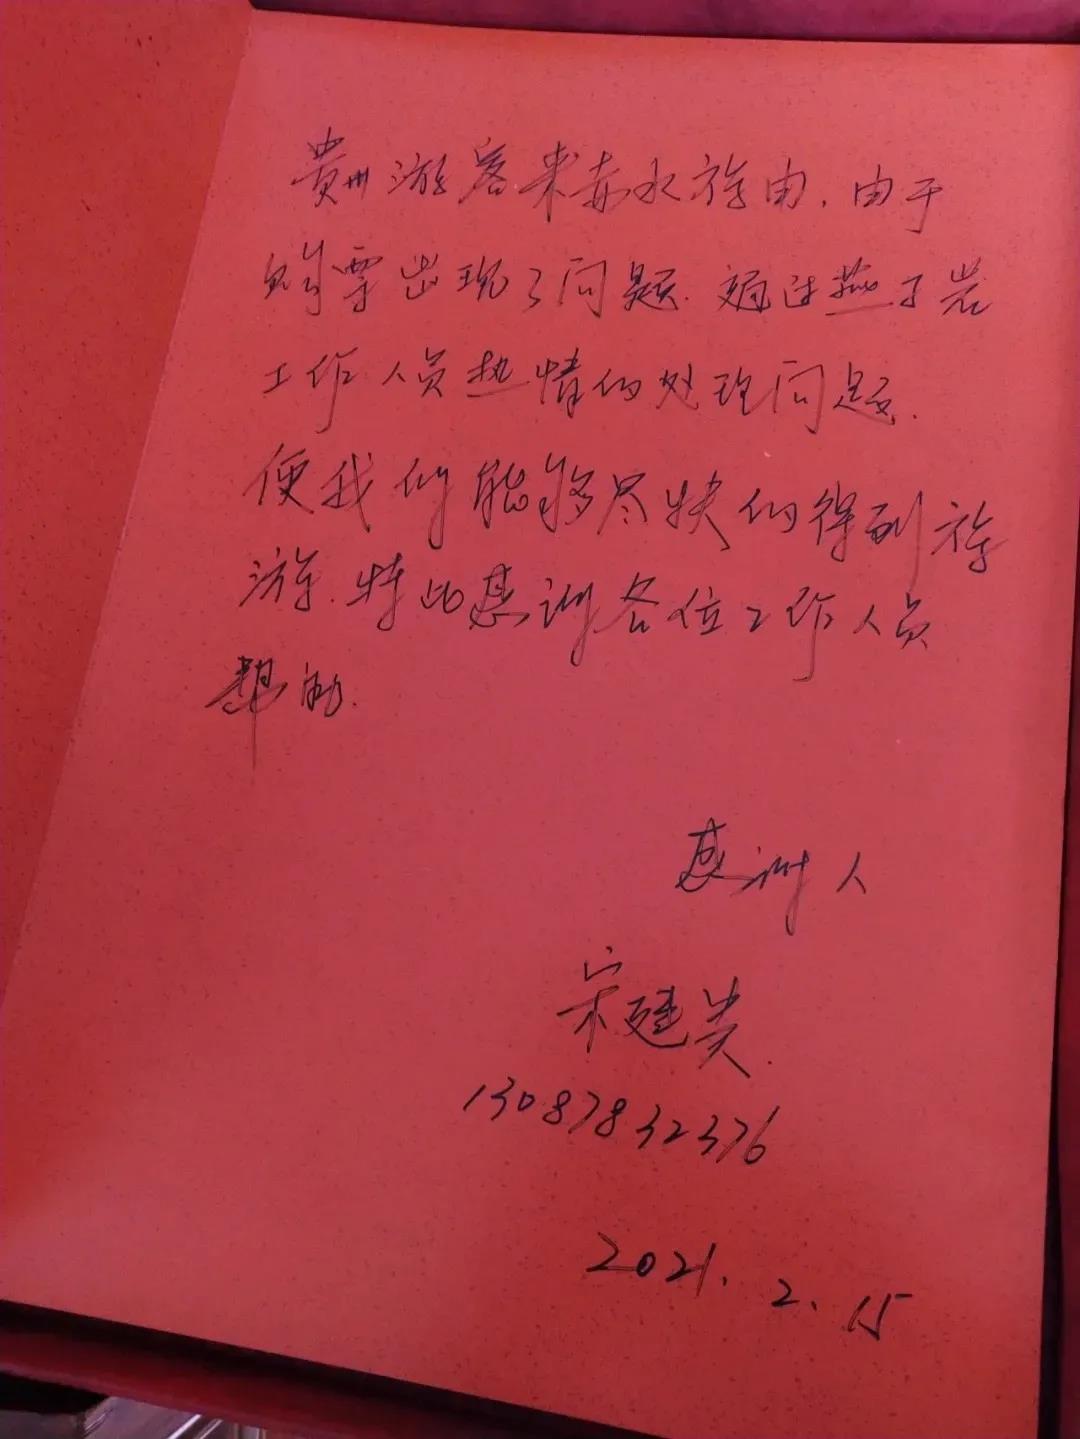 贵州游客来赤水旅由，由于
购票出现了问题。通过燕子岩
工作人员热情的处理问题。
使我们能够尽快的得到旅
游。特此感谢各位工作人员
帮助。
感谢人
宋建贵
13087832376
2021.2.15